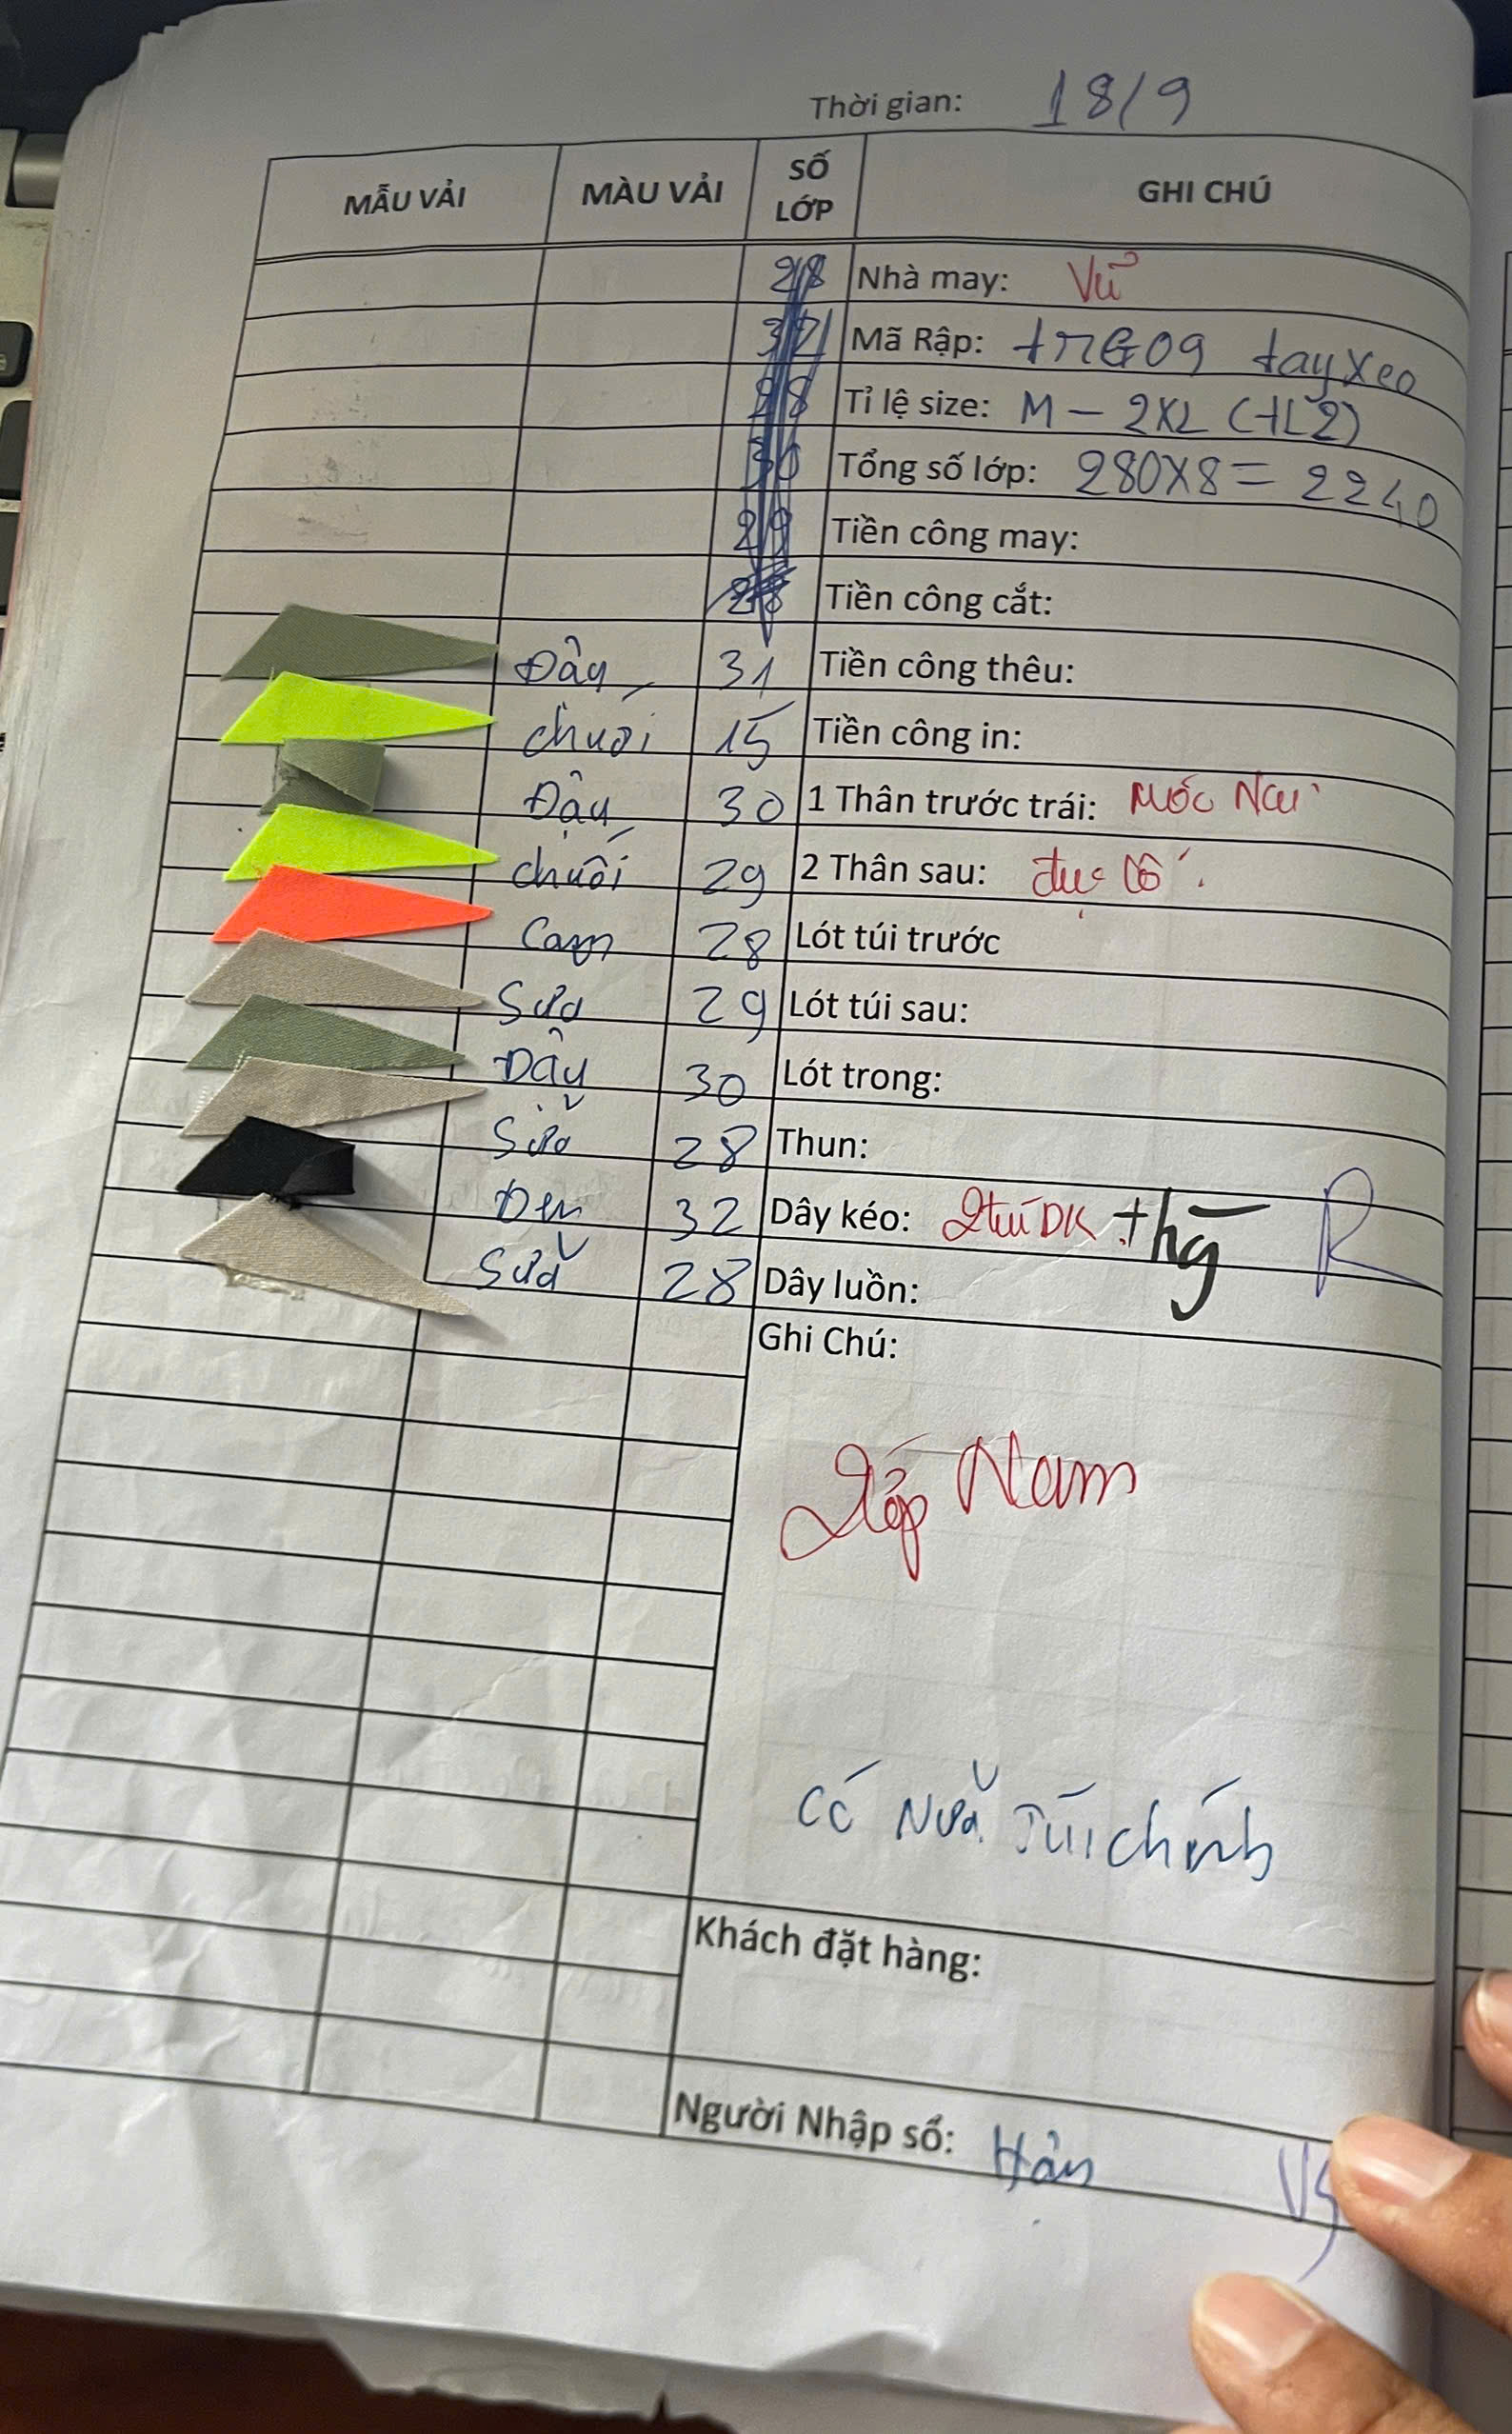 Thời gian: 18/9
MẪU VẢI MÀU VẢI SỐ LỚP GHI CHÚ
28 Nhà may: Vũ
Mã Rập: tayxeo
Tỉ lệ size: M - 2XL (+L2)
30 Tổng số lớp: 280x8 = 2240
29 Tiền công may:
28 Tiền công cắt:
Đậu 31 Tiền công thêu:
chuối 15 Tiền công in:
Đậu 30 1 Thân trước trái: Móc
chuối 29 2 Thân sau:
Cam 28 Lót túi trước
Sữa 29 Lót túi sau:
Đậu 30 Lót trong:
Sữa 28 Thun:
Đen 32 Dây kéo: 2túi DK + hg R
Sữa 28 Dây luồn:
Ghi Chú:
Nam
Có Nữa Túi chính
Khách đặt hàng:
Người Nhập số: Hân